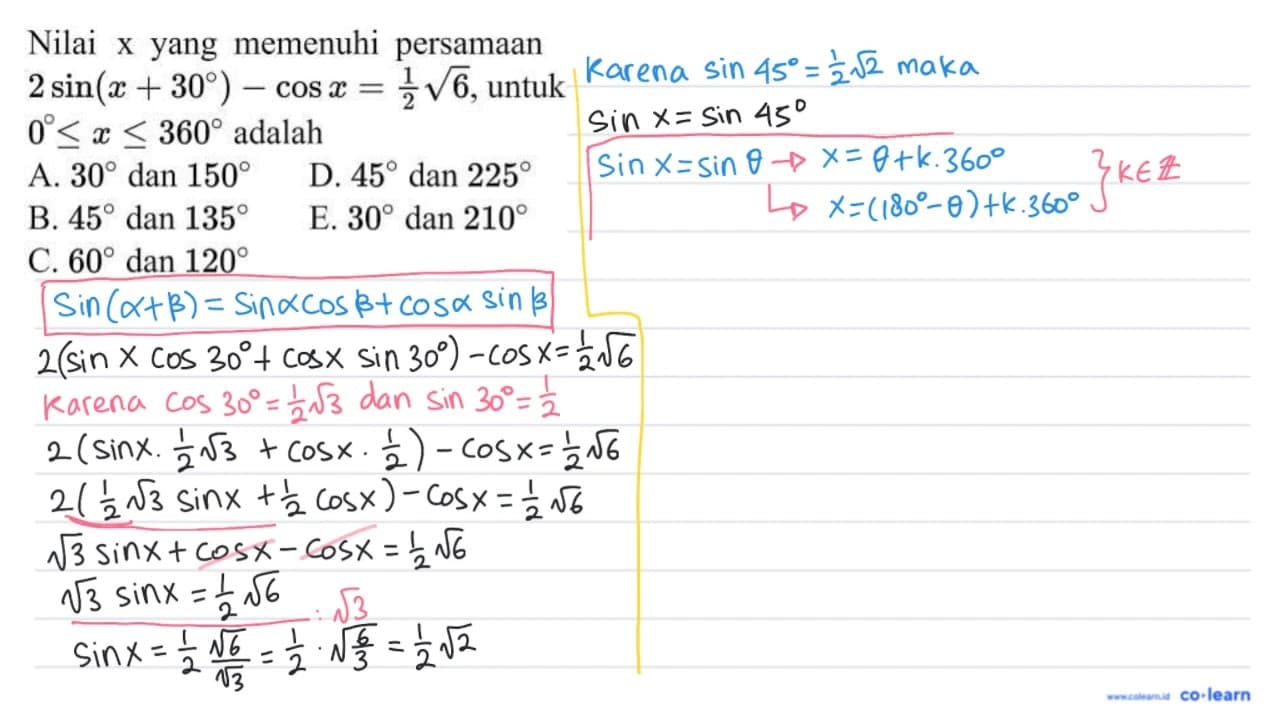 Nilai x yang memenuhi persamaan
2 sin(x + 30°) − cos x = 1/2 √6, untuk
0° ≤ x ≤ 360° adalah
A. 30° dan 150° D. 45° dan 225°
B. 45° dan 135° E. 30° dan 210°
C. 60° dan 120°
Sin(α+β) = Sinα Cosβ + cosα sinβ
2(sin x cos 30° + cos x sin 30°) − cos x = 1/2 √6
Karena cos 30° = 1/2 √3 dan sin 30° = 1/2
2(sin x · 1/2 √3 + cos x · 1/2) − cos x = 1/2 √6
2(1/2 √3 sin x + 1/2 cos x) − cos x = 1/2 √6
√3 sin x + cos x − cos x = 1/2 √6
√3 sin x = 1/2 √6
: √3
Sin x = 1/2 √6/√3 = 1/2 · √6/3 = 1/2 √2
Karena sin 45° = 1/2 √2 maka
Sin x = Sin 45°
Sin x = sin θ → x = θ + k.360°
↳ x = (180° − θ) + k.360°
} k ∈ ℤ
www.colearn.id co·learn